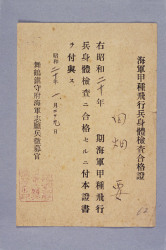 海軍甲種飛行兵身體檢査合格證
田畑
右昭和二十年 期海軍甲種飛行
兵身體檢査ニ合格セルニ付本證書
ヲ付與ス
昭和二十年
舞鶴鎮守府海軍志願兵徴募官